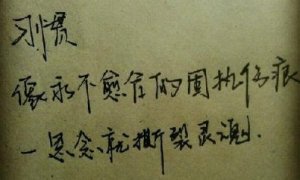 习惯
像永不愈合的固执伤痕
一思念就撕裂灵魂.